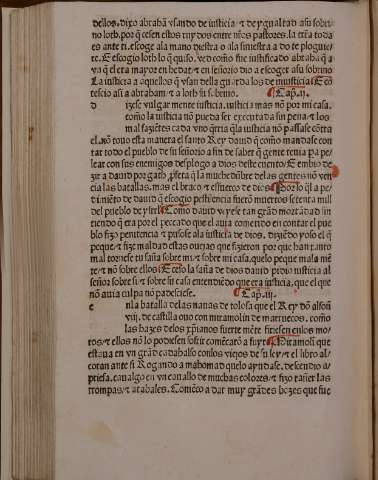 dellos. dixo abrahã vsando de iusticia ⁊ de ygualtad asu sobri
no loth. por q̃ cesen estos ruydos entre nr̃os pastores. la trr̃a toda
es ante ti. escoge ala mano diestra o ala siniestra a do te plogui
te. E escogio loth lo q̃ quiso. ved como fue iustificado abrahã q̃ a
vn q̃ el era mayor en hedat ⁊ en señorio dio a escoger asu sobrino
La iusticia a aquellos q̃ vsan della guarda los de iniusticia
tescio asi a abraham ⁊ a loth su sobrino. Cap. ii.
d izese vulgar mente iusticia. iusticia mas nõ por mi casa.
como la iusticia nõ pueda ser executada sin pena ⁊ los
mal fazientes cada vno q̃rria q̃la iusticia nõ passase cõtra
el. nõ touo esta manera el santo Rey dauid q̃ como mandase con
tar todo el pueblo de su señorio a fin de saber q̃ gente tenia pa pe
lear con sus enemigos desplogo a dios deste cuento ⁊ Embio de
zir a dauid por gath ꝓfeta q̃ la muchedũbre delas gentes nõ ven
cia las batallas. mas el braço ⁊ esfuerço de dios Por lo q̃l a pe
dimiẽto de dauid q̃ escogio pestilencia fuerõ muertos setenta mill
del pueblo de ysrl̃ Como dauid viyese tan grãd mortãdad sin
tiendo q̃ era por el peccado que el auia comendo en contar el pue
blo fizo penitencia ⁊ pusose ala iusticia de dios. diziẽdo yo so el q̃
peque ⁊ fize mal dad estas ouejas que fizieron por que han tanto
mal tornese tu saña sobre mi ⁊ sobre mi casa. quelo peque mala mẽ
te ⁊ nõ sobre ellos Ceso la saña de dios dauid pidio iusticia al
señor sobre si ⁊ sobre su casa entendiendo que era iusticia. que el que
nõ auia culpa nõ padesciese. Cap. iii.
e nla batalla delas nauas de tolosa que el Rey dõ alfoñ
viij. de castilla ouo con miramolin de marruecos. como
las hazes delos xp̃ianos fuerte mẽte firiesen enlos mo
ros ⁊ ellos nõ lo podiesen sofrir comẽcarõ a fuyr Miramoli que
estaua en vn grãd cadahalso conlos viejos de su ley ⁊ el libro al
coran ante si Rogando a mahomad quelo ayudase. descendio a
priesa. caualgo en vn cauallo de muchas colores ⁊ fizo tañer las
trompas ⁊ atabales. Començo a dar muy grãdes bozes que fue